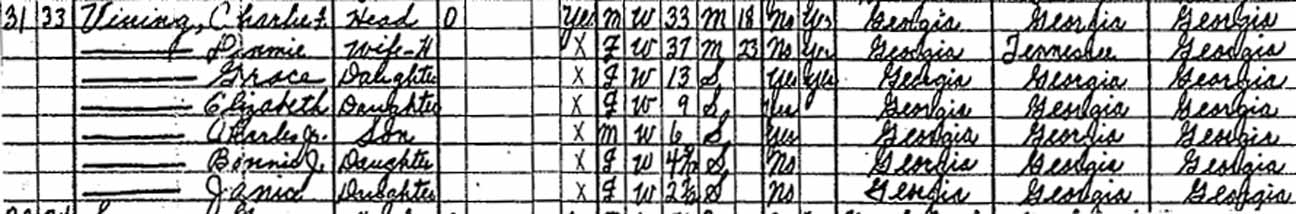 31 33 Vining, Charlie F. Head O Yes M W 33 M 18 No Yes Georgia Georgia Georgia
Wife-H X F W 37 M 23 No Yes Georgia Tennessee Georgia
Grace Daughter X F W 13 S Yes Yes Georgia Georgia Georgia
Elizabeth Daughter X F W 9 S Yes Georgia Georgia Georgia
Charlie Jr. Son X M W 6 S Yes Georgia Georgia Georgia
Bonnie J. Daughter X F W S No Georgia Georgia Georgia
Janice Daughter X F W S No Georgia Georgia Georgia